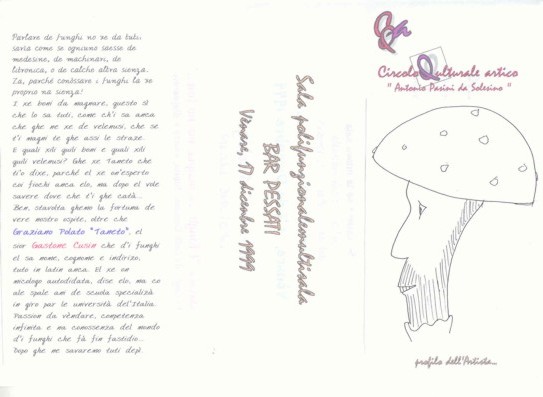 Parlare de funghi no xe da tuti:
saria come se ogniuno savesse de
medesine, de machinari, de
litronica, o de calcho altra sienza.
Za, parché conóssare i funghi la xe
proprio na sienza!
I xe boni da magnare, questo sì
che lo sa tuti, come ch'i sa anca
che ghe ne xe de velenusi, che se
t'i magni te ghe assi le straze.
E quali xili quili boni e quali xili
quili velenusi? Ghe xe Tameto che
ti'o dixe, parché el xe on'esperto
coi fiochi anca elo, ma dopo el vole
savere dove che t'i ghe catà...
Ben, stavolta ghemo la fortuna de
vere mostro ospite, oltre che
Graziamo Polato "Tameto", el
sior Gastone Cusin che d'i funghi
el sa nome, cognome e indirizo,
tuto in latin anca. El xe on
micologo autodidata, dise elo, ma co
ale spale ani de scuola specializà
in giro par le università del'Italia.
Passion da véndare, competenza
infinita e na conossenza del mondo
d'i funghi che fà fin fastidio...
Dopo ghe ne savaremo tuti depì.
Sala polifunzionalemultisala
BAR PESSATI
Vènare, 17 dicembre 1999
Circolo Qulturale artico
" Antonio Pasini da Solesino "
profilo dell'Artista...